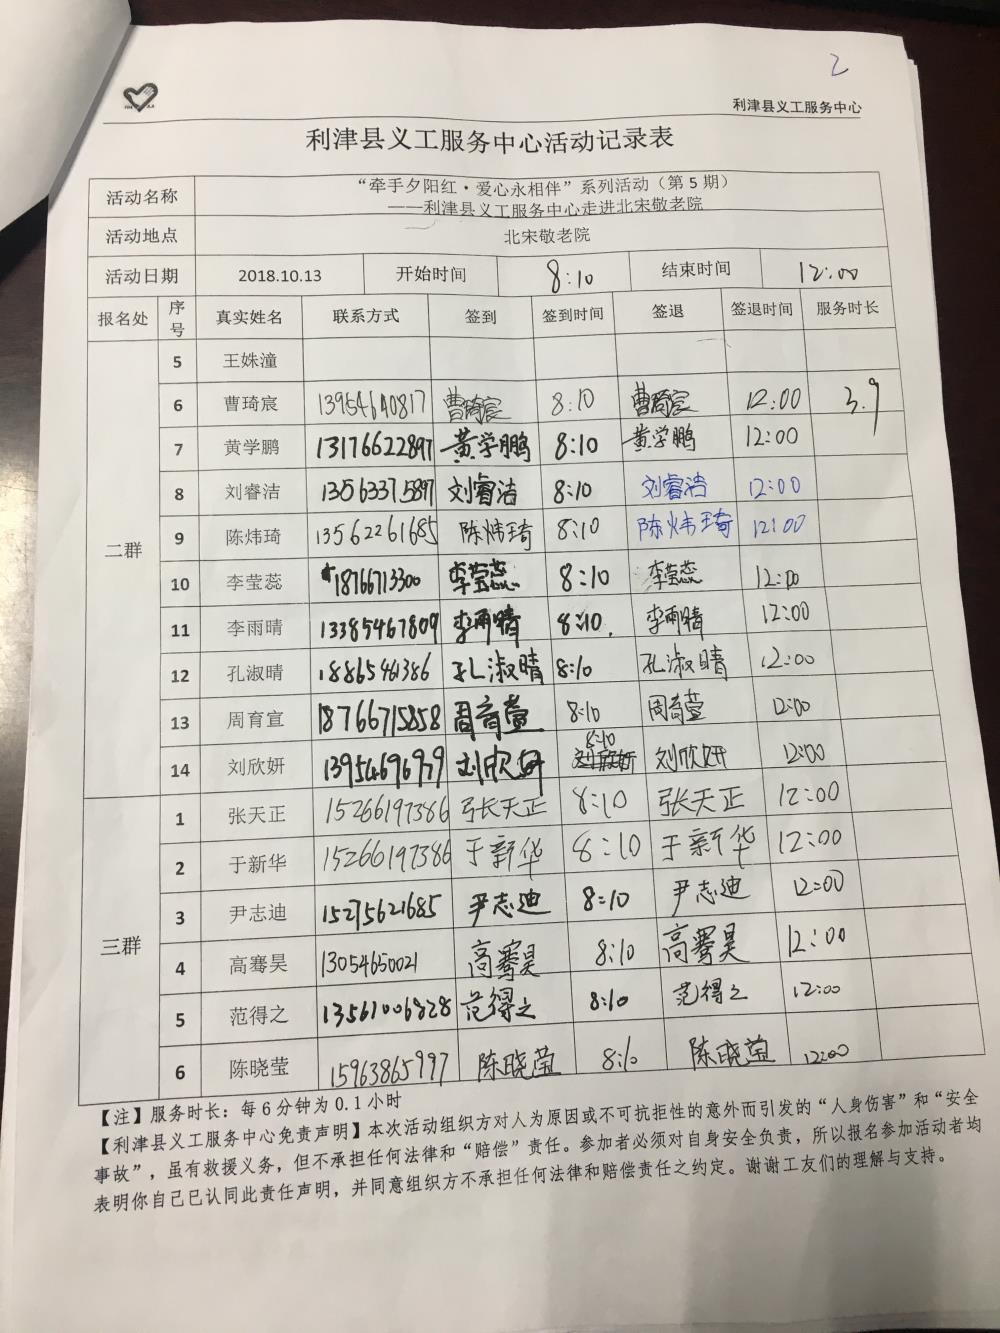 2
利津县义工服务中心
利津县义工服务中心活动记录表
活动名称 “牵手夕阳红·爱心永相伴”系列活动（第5期）
——利津县义工服务中心走进北宋敬老院
活动地点 北宋敬老院
活动日期 2018.10.13 开始时间 8:10 结束时间 12:00
报名处 序号 真实姓名 联系方式 签到 签到时间 签退 签退时间 服务时长
二群
5 王姝潼
6 曹琦宸 13954640817 曹琦宸 8:10 曹琦宸 12:00 3.9
7 黄学鹏 13176622897 黄学鹏 8:10 黄学鹏 12:00
8 刘睿洁 13563375897 刘睿洁 8:10 刘睿洁 12:00
9 陈炜琦 13562261685 陈炜琦 8:10 陈炜琦 12:00
10 李莹蕊 18766713300 李莹蕊 8:10 李莹蕊 12:00
11 李雨晴 13385467809 李雨晴 8:10. 李雨晴 12:00
12 孔淑晴 18865461386 孔淑晴 8:10 孔淑晴 12:00
13 周育宣 18766715858 周育萱 8:10 周育萱 12:00
14 刘欣妍 13954696979 刘欣妍 8:10 刘欣妍 12:00
三群
1 张天正 15266197386 张天正 8:10 张天正 12:00
2 于新华 15266197386 于新华 8:10 于新华 12:00
3 尹志迪 15275621685 尹志迪 8:10 尹志迪 12:00
4 高骞昊 13054650021 高骞昊 8:10 高骞昊 12:00
5 范得之 13561006828 范得之 8:10 范得之 12:00
6 陈晓莹 15963865997 陈晓莹 8:10 陈晓莹 12:00
【注】服务时长：每6分钟为0.1小时
【利津县义工服务中心免责声明】本次活动组织方对人为原因或不可抗拒性的意外而引发的“人身伤害”和“安全
事故”，虽有救援义务，但不承担任何法律和“赔偿”责任。参加者必须对自身安全负责，所以报名参加活动者均
表明你自己已认同此责任声明，并同意组织方不承担任何法律和赔偿责任之约定。谢谢工友们的理解与支持。